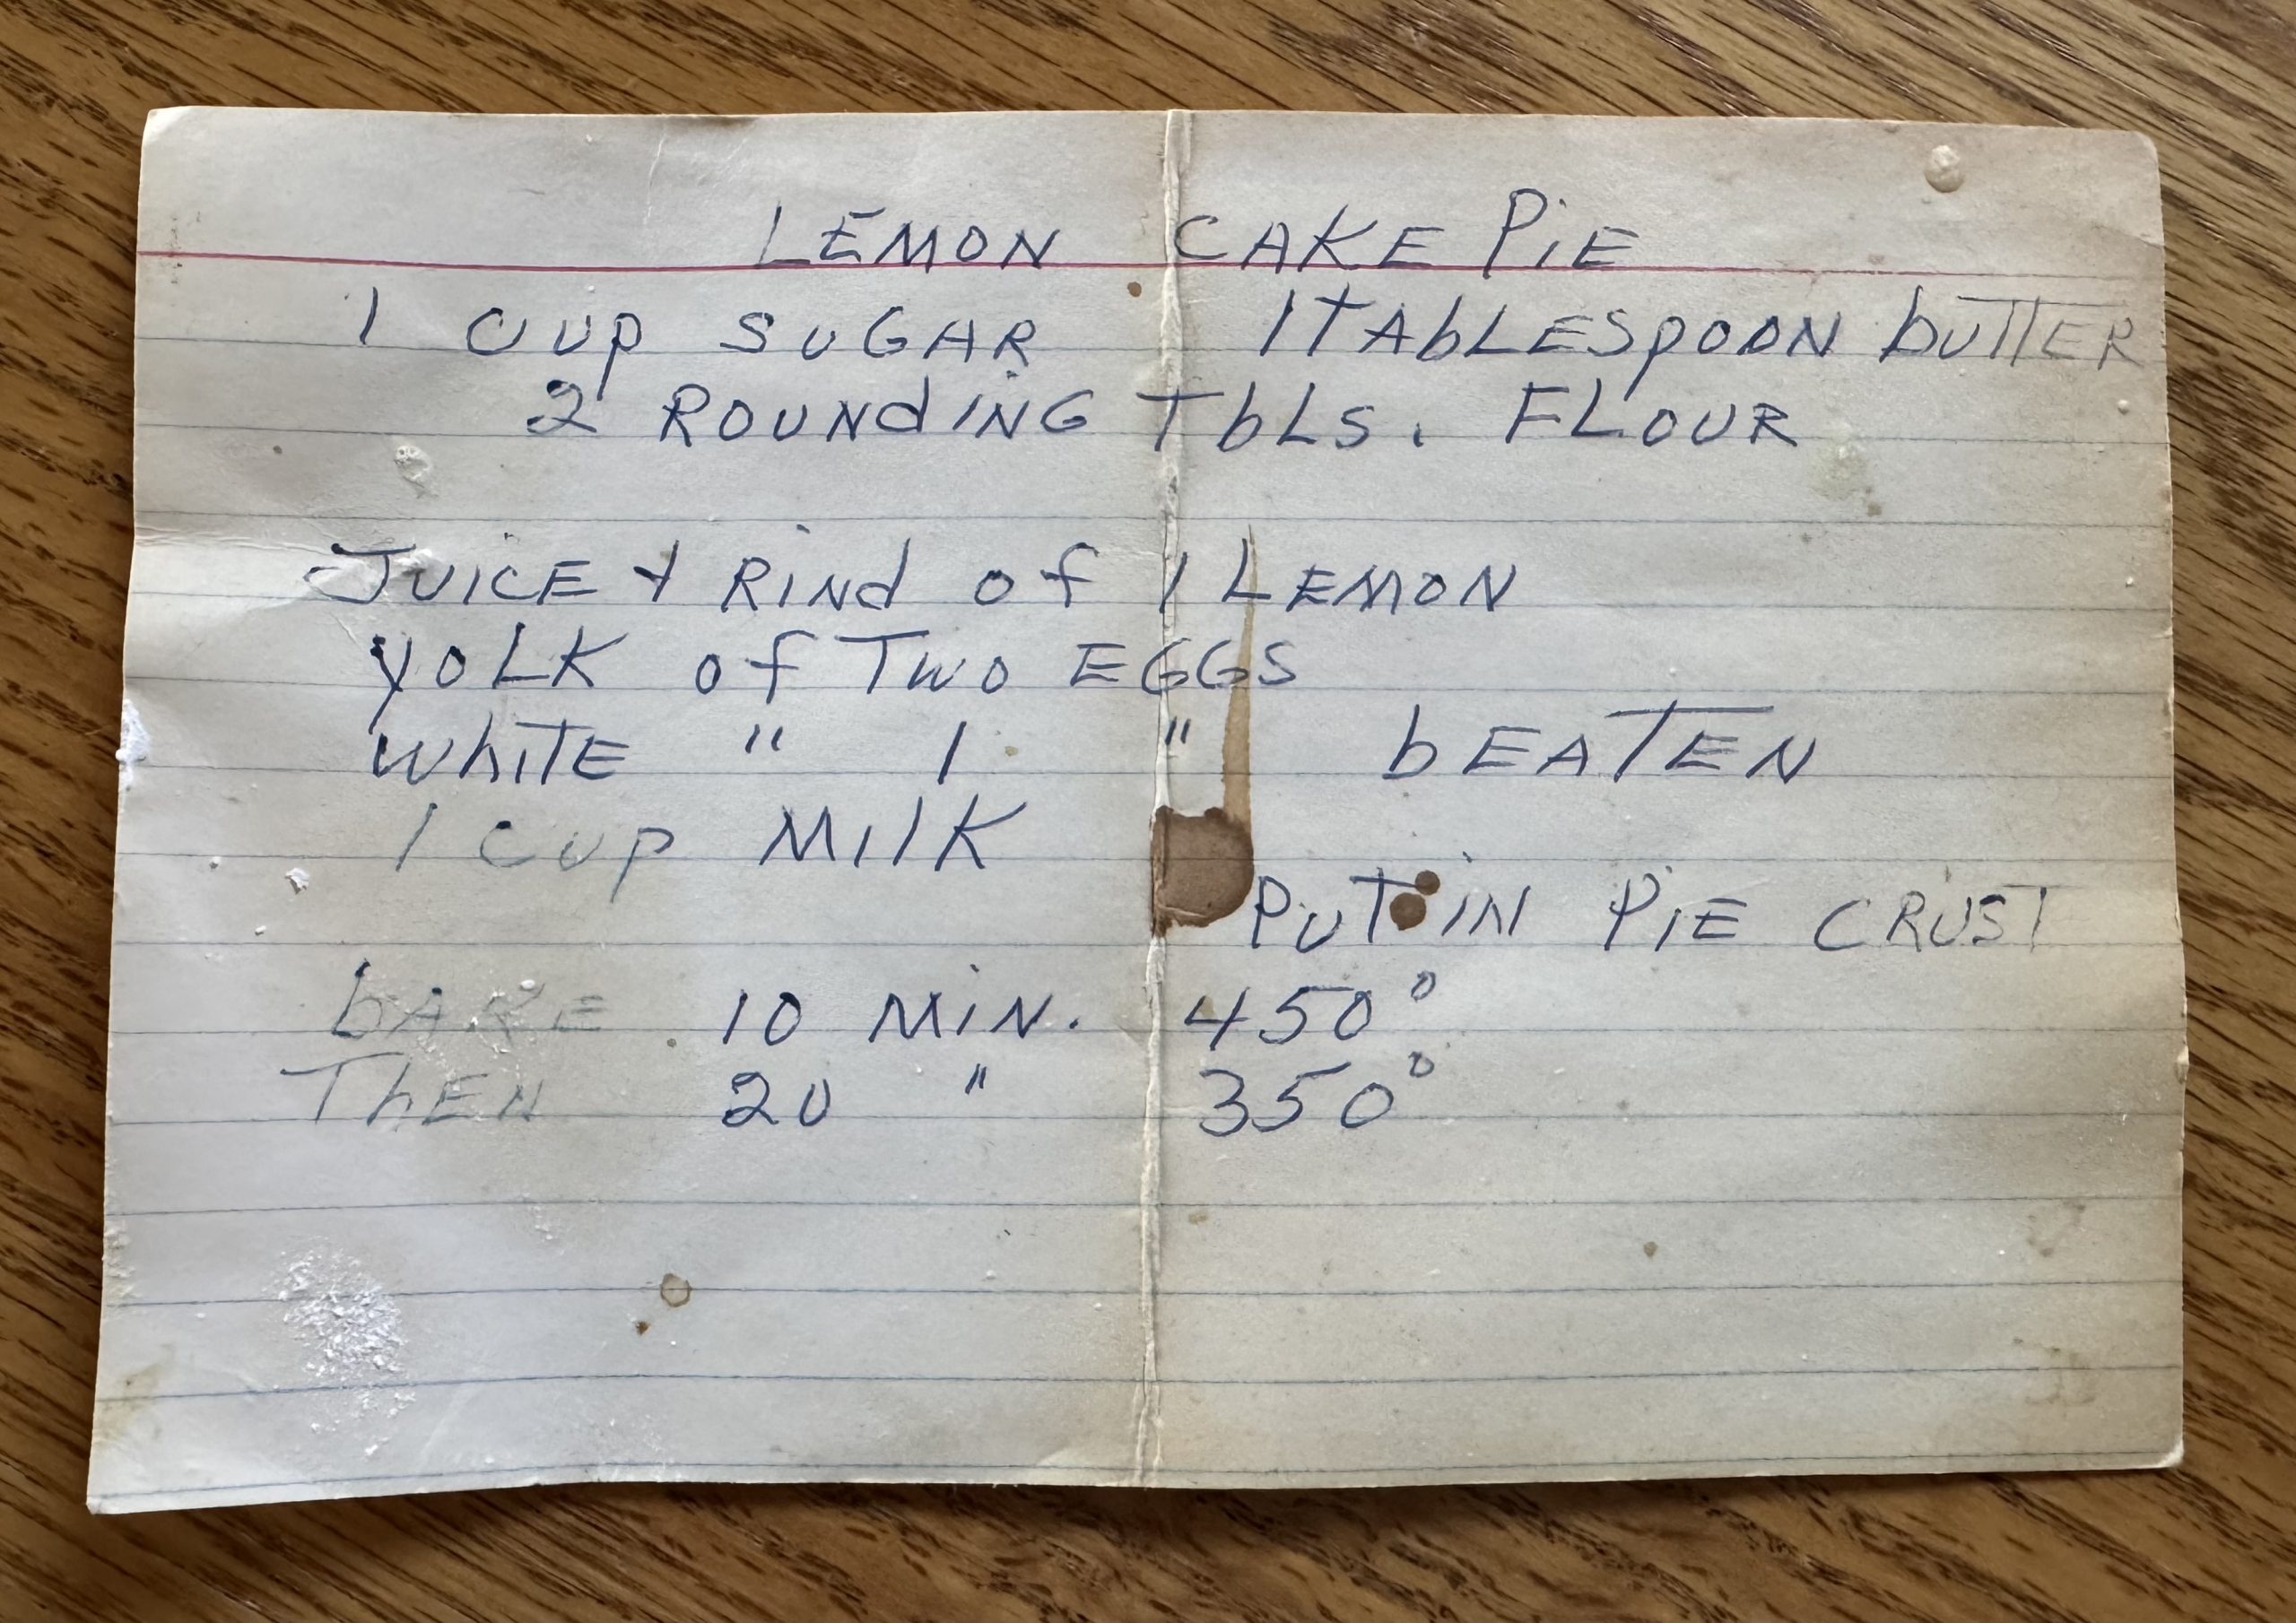 LEMON CAKE PiE
1 CUP SUGAR 1 TAbLESpOON bUTTER
2 ROUNdING TbLS. FLOUR
JUICE + RINd of 1 LEMON
yOLK of TWO EGGS
WhITE " 1 " bEATEN
1 CUP MILK
PUT IN PIE CRUST
bAKE 10 MIN. 450°
ThEN 20 " 350°